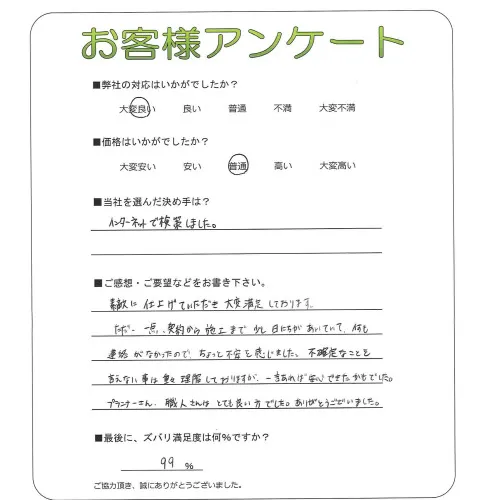 お客様アンケート
■弊社の対応はいかがでしたか？
大変良い 良い 普通 不満 大変不満
■価格はいかがでしたか？
大変安い 安い 普通 高い 大変高い
■当社を選んだ決め手は？
インターネットで検索しました。
■ご感想・ご要望などをお書き下さい。
素敵に仕上げていただき大変満足しております。
ただ、一点、契約から施工まで少し日にちがあいていて、何も
連絡がなかったので、ちょっと不安を感じました。不確定なことを
言えない事は重々理解しておりますが、一言あれば安心できたかもでした。
プランナーさん、職人さんはとても良い方でした。ありがとうございました。
■最後に、ズバリ満足度は何%ですか？
99 %
ご協力頂き、誠にありがとうございました。